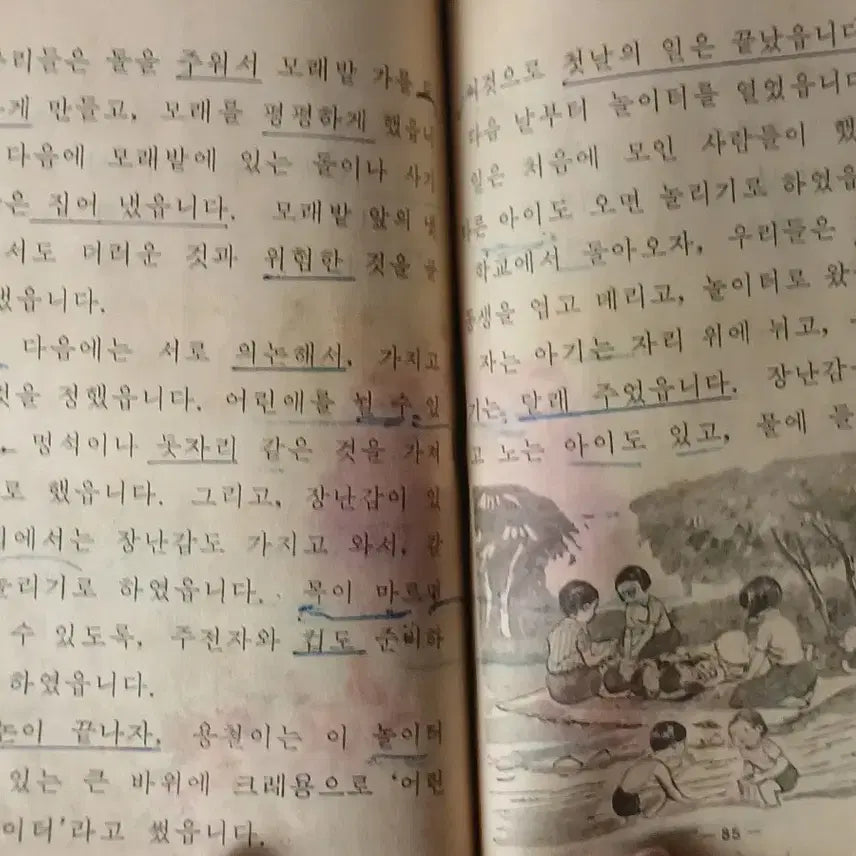 리들은 돌을 주워서 모래밭 가를
게 만들고, 모래를 평평하게 했읍니
다음에 모래밭에 있는 돌이나 사기
은 집어 냈읍니다. 모래밭 앞의 냇
서도 더러운 것과 위험한 것을 들
냈읍니다.
다음에는 서로 의논해서, 가지고
것을 정했읍니다. 어린애를 뉠 수 있
멍석이나 돗자리 같은 것을 가져
로 했읍니다. 그리고, 장난감이 있
에서는 장난감도 가지고 와서, 같
놀리기로 하였읍니다. 목이 마르면
수 있도록, 주전자와 컵도 준비하
하였읍니다.
논이 끝나자, 용철이는 이 놀이터
있는 큰 바위에 크레용으로 '어린
이터'라고 썼읍니다.
이것으로 첫날의 일은 끝났읍니다
다음 날부터 놀이터를 열었읍니다
일은 처음에 모인 사람들이 했
다른 아이도 오면 놀리기로 하였읍
학교에서 돌아오자, 우리들은
동생을 업고 데리고, 놀이터로 왔
자는 아기는 자리 위에 뉘고,
기는 달래 주었읍니다. 장난감
고 노는 아이도 있고, 물에 들
- 85 -